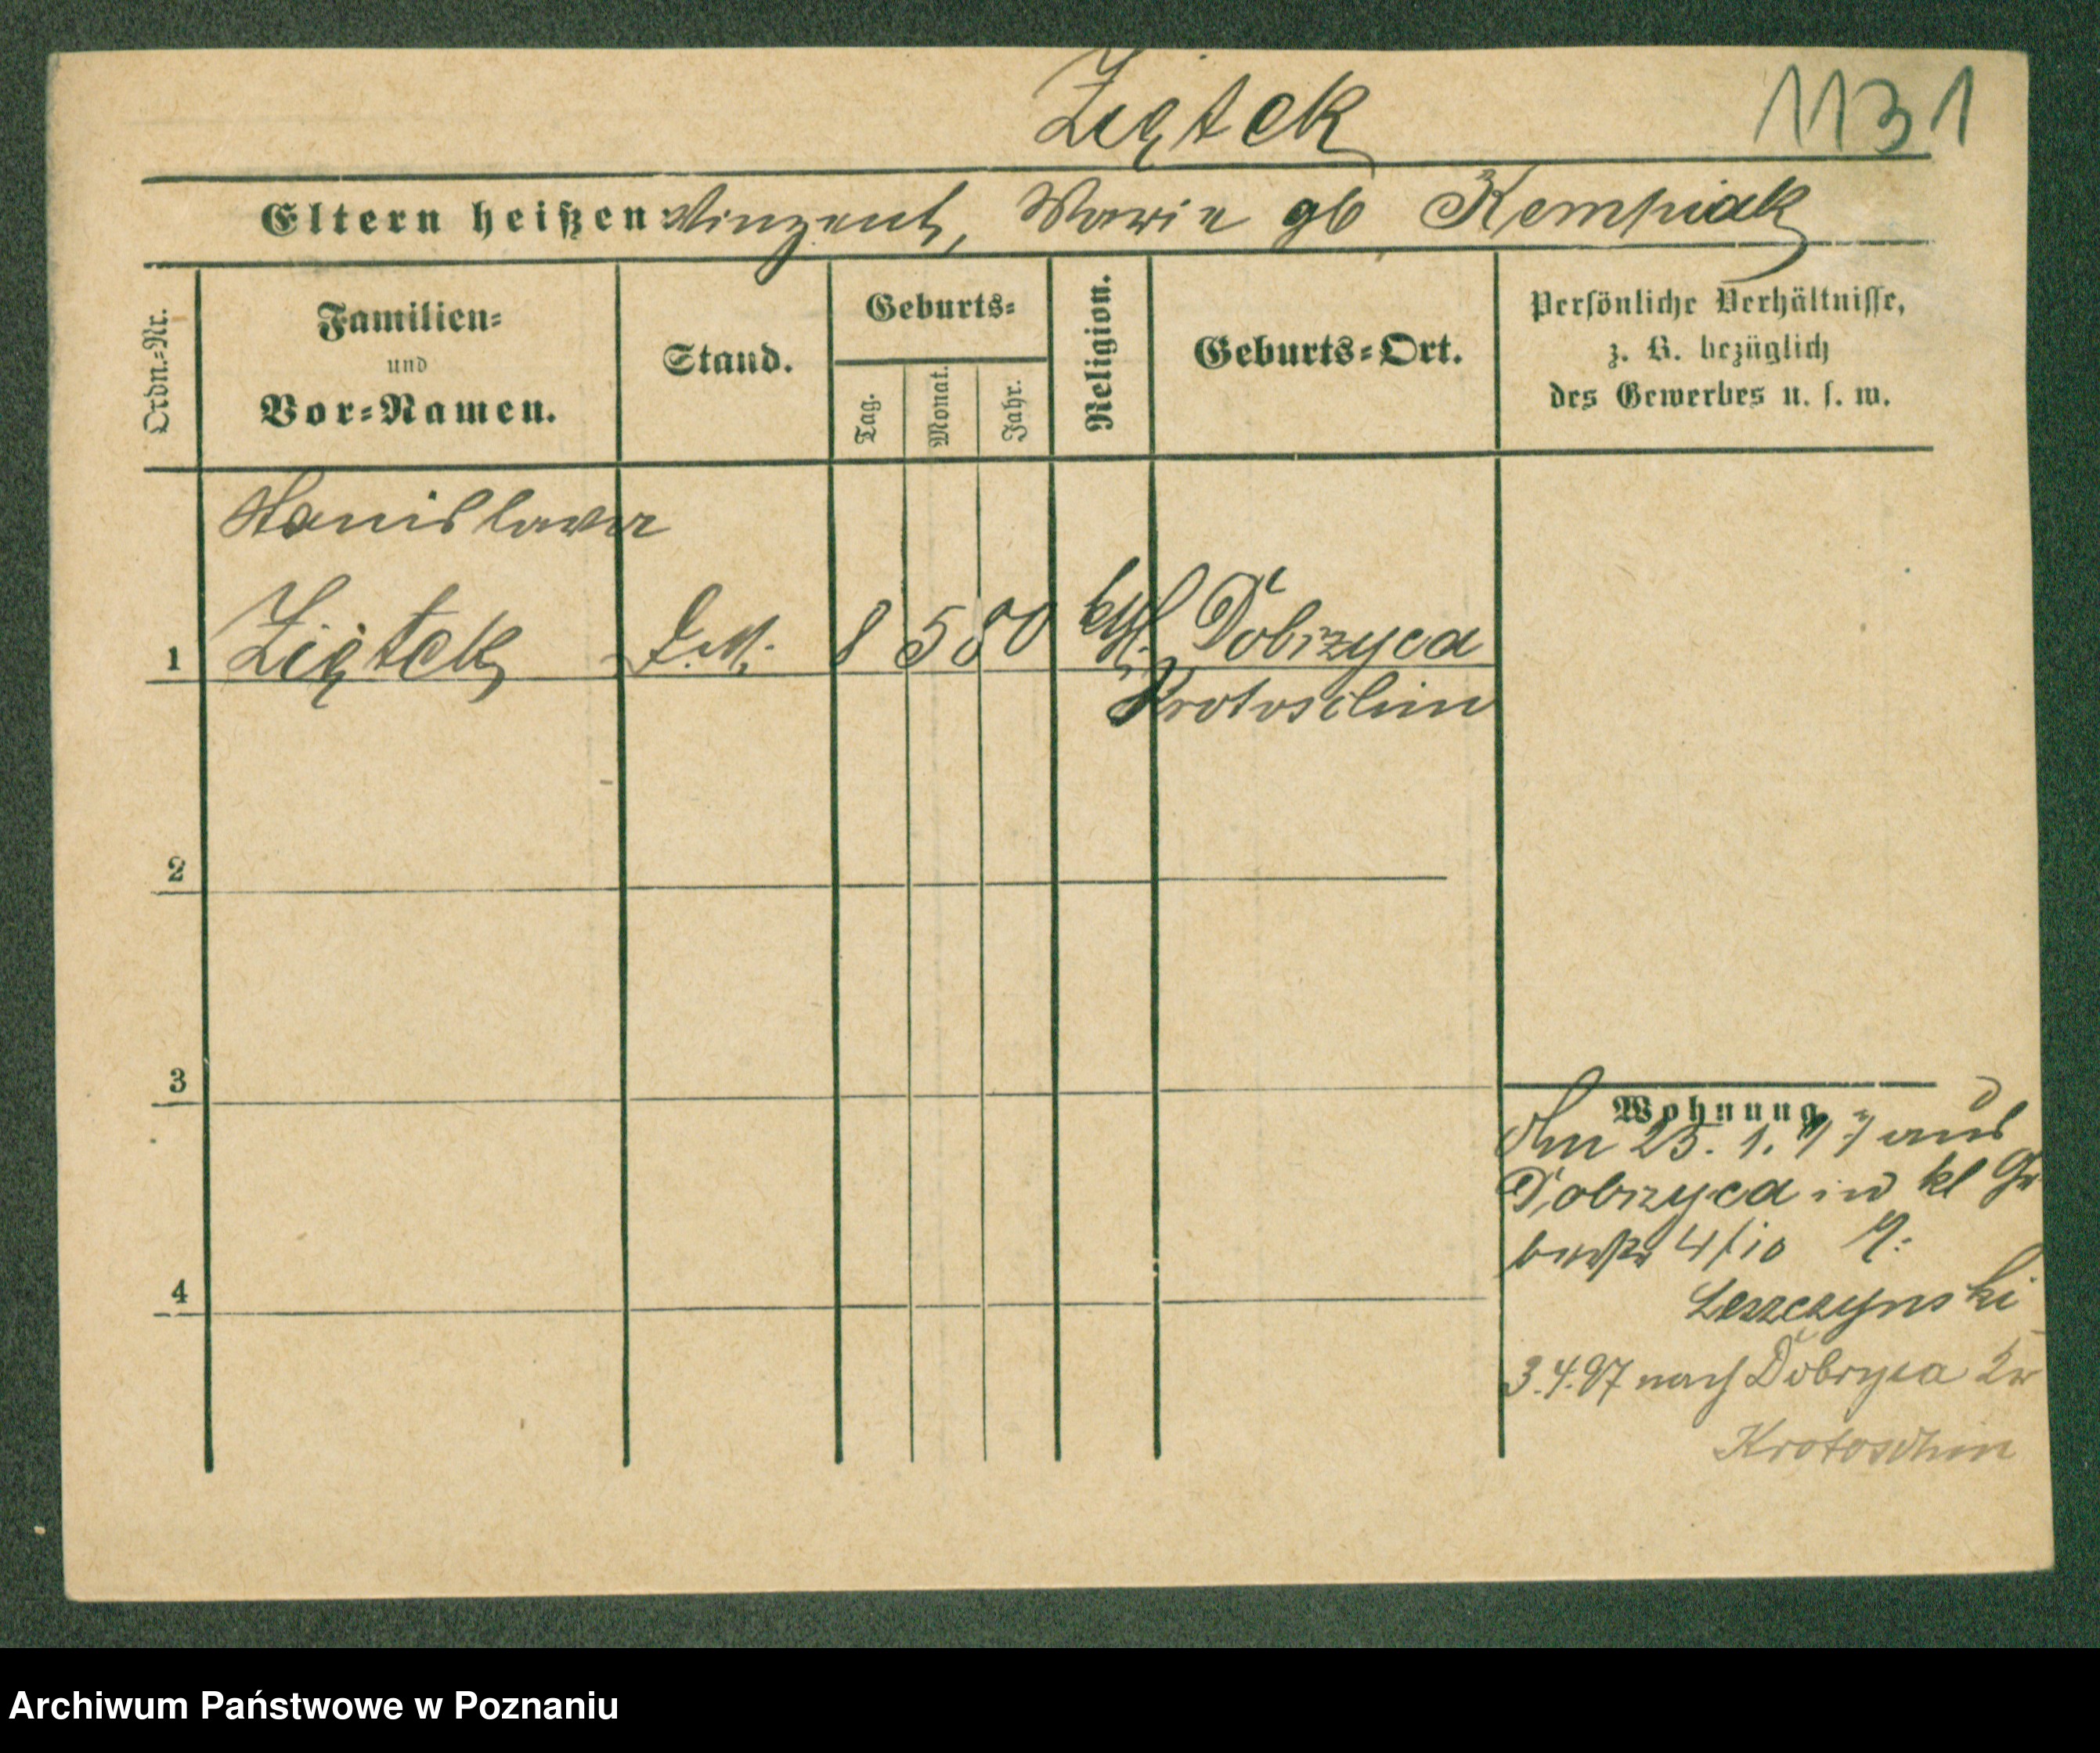 Ziętek 1131
Eltern heißen Vinzent, Marie gb Kempiak
Ordn.-Nr.
Familien-
und
Vor-Namen.
Stand.
Geburts-
Tag.
Monat.
Jahr.
Religion.
Geburts-Ort.
Persönliche Verhältnisse,
z. B. bezüglich
des Gewerbes u. s. w.
Stanislawa
1 Ziętek D.M. 8 5 80 kth. Dobrzyca
Krotoschin
2
3
4
Wohnung
Am 25. 1. 97 aus
Dobrzyca in kl Ger
berstr 4/10
Leszczynski
3.4.97 nach Dobryca Kr
Krotoschin
Archiwum Państwowe w Poznaniu